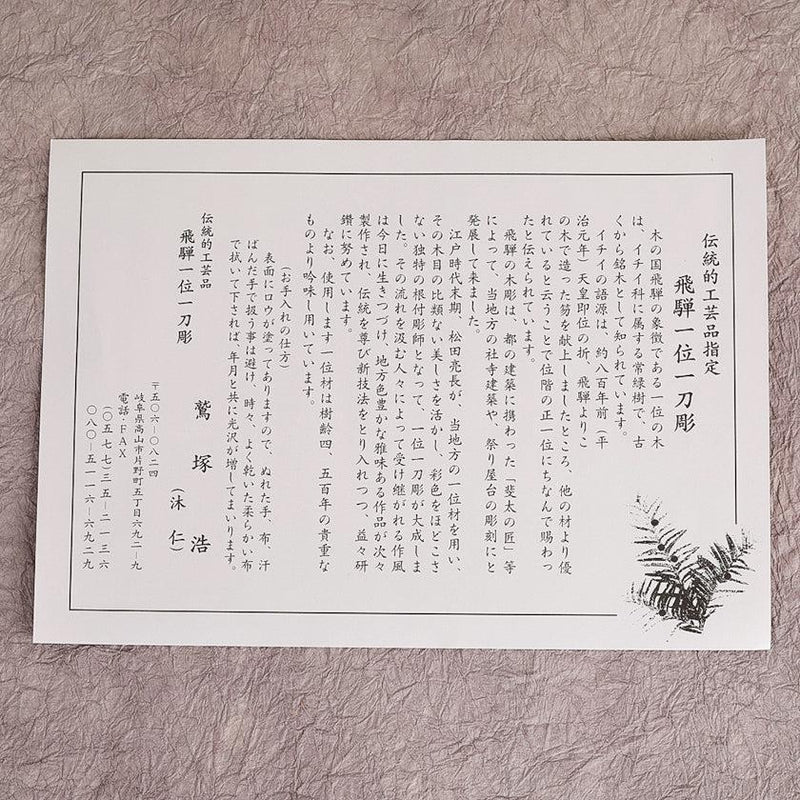 伝統的工芸品指定
飛騨一位一刀彫
木の国飛騨の象徴である一位の木
は、イチイ科に属する常緑樹で、古
くから銘木として知られています。
イチイの語源は、約八百年前（平
治元年）天皇即位の折、飛騨よりこ
の木で造った笏を献上しましたところ、他の材より優
れていると云うことで位階の正一位にちなんで賜わっ
たと伝えられています。
飛騨の木彫は、都の建築に携わった「斐太の匠」等
によって、当地方の社寺建築や、祭り屋台の彫刻にと
発展して来ました。
江戸時代末期、松田亮長が、当地方の一位材を用い、
その木目の比類ない美しさを活かし、彩色をほどこさ
ない独特の根付彫師となって、一位一刀彫が大成しま
した。その流れを汲む人々によって受け継がれる作風
は今日に生きつづけ、地方色豊かな雅味ある作品が次々
製作され、伝統を尊び新技法をとり入れつつ、益々研
鑽に努めています。
なお、使用します一位材は樹齢四、五百年の貴重な
ものより吟味し用いています。
（お手入れの仕方）
表面にロウが塗ってありますので、ぬれた手、布、汗
ばんだ手で扱う事は避け、時々、よく乾いた柔らかい布
で拭いて下されば、年月と共に光沢が増してまいります。
伝統的工芸品
飛騨一位一刀彫
鷲塚浩
（沐仁）
〒五〇六－〇八二四
岐阜県高山市片野町五丁目六九二－九
電話・FAX
（〇五七七）三五－二一三六
〇八〇－五一一六－六九二九